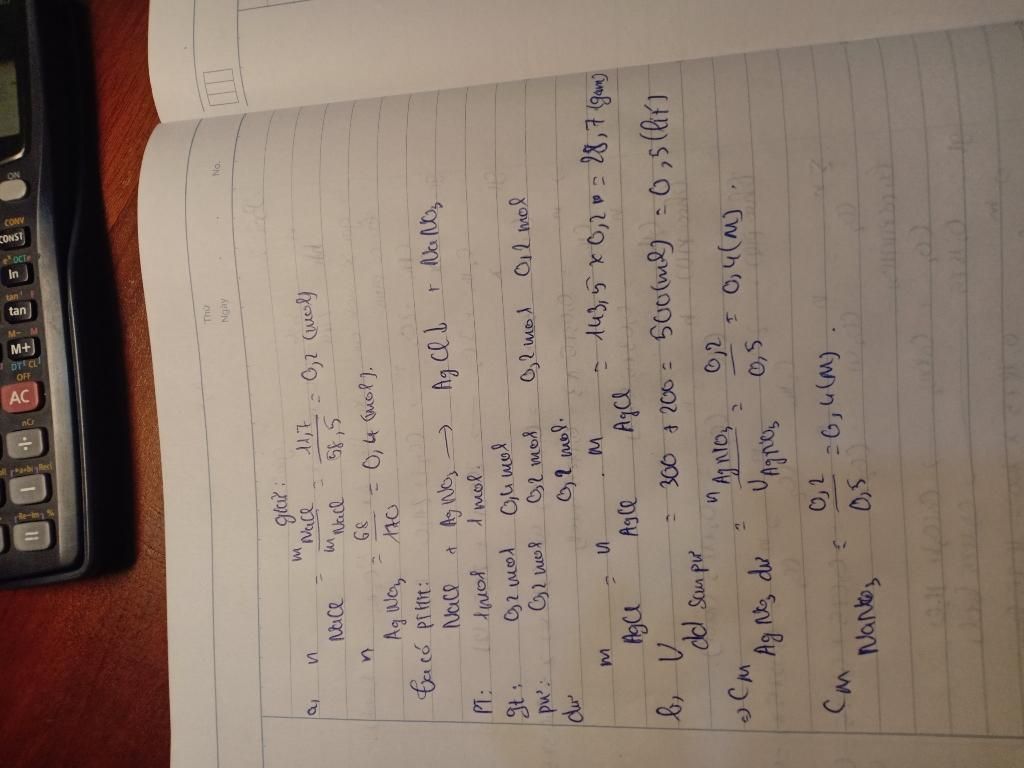 Thứ
Ngày
No.
giải:
a, n NaCl = m NaCl / m NaCl = 11,7 / 58,5 = 0,2 (mol)
n AgNO3 = 68 / 170 = 0,4 (mol).
Ta có PTHH:
NaCl + AgNO3 → AgCl↓ + NaNO3
PT: 1mol 1mol.
gt: 0,2 mol 0,4 mol
pư: 0,2 mol 0,2 mol 0,2 mol 0,2 mol
dư 0,2 mol.
m AgCl = n AgCl . M AgCl = 143,5 x 0,2 = 28,7 (gam)
b, V dd sau pư = 300 + 200 = 500 (ml) = 0,5 (lít)
⇒ CM AgNO3 dư = n AgNO3 / V AgNO3 = 0,2 / 0,5 = 0,4 (M).
CM NaNO3 = 0,2 / 0,5 = 0,4 (M).
ON
CONV
CONST
ln
tan
M+
OFF
AC
nCr
÷
−
=